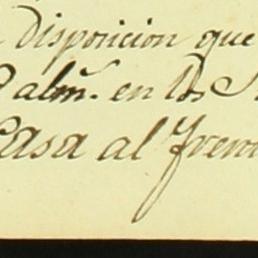 Disposicion que
almũ. en los
Casa al Fren